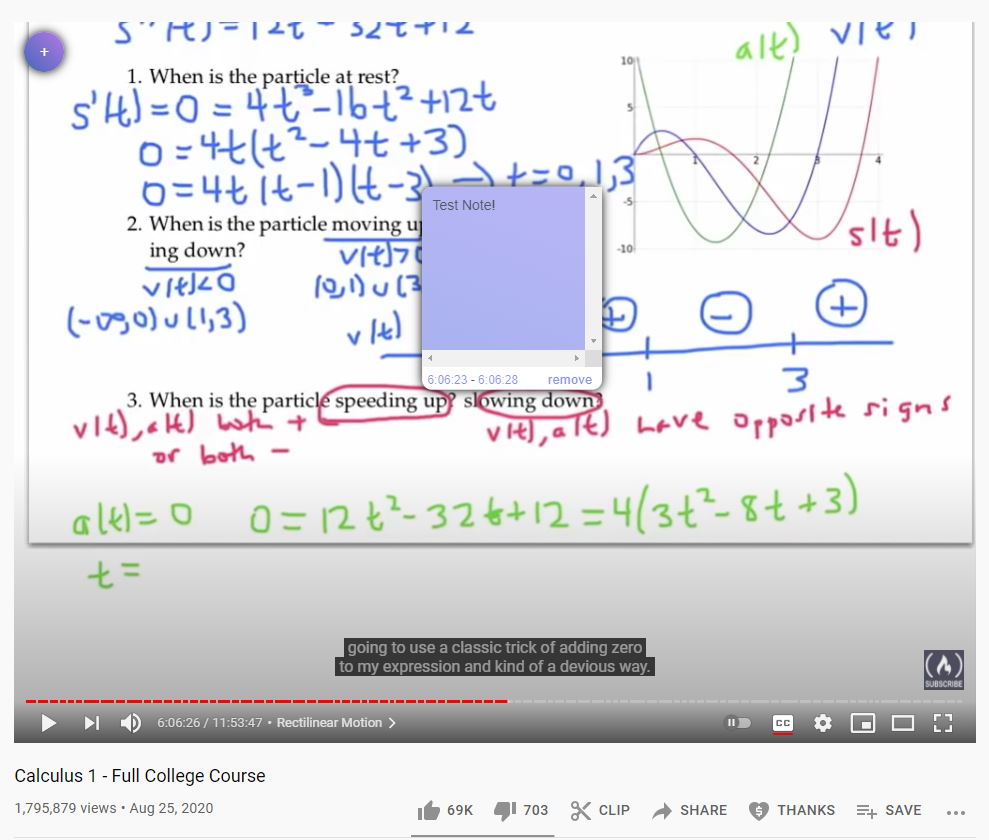 s''(t) = 12t² - 32t + 12
+
1. When is the particle at rest?
s'(t) = 0 = 4t³ - 16t² + 12t
0 = 4t(t² - 4t + 3)
0 = 4t(t-1)(t-3) → t = 0, 1, 3
2. When is the particle moving up
ing down?
v(t) > 0
v(t) < 0
(0,1) ∪ (3
(-∞,0) ∪ (1,3)
v(t)
+ - +
1 3
a(t) v(t)
10
5
1 2 3 4
-5
-10
s(t)
Test Note!
6:06:23 - 6:06:28 remove
3. When is the particle speeding up? slowing down?
v(t), a(t) both +
or both -
v(t), a(t) have opposite signs
a(t) = 0 0 = 12t² - 32t + 12 = 4(3t² - 8t + 3)
t =
going to use a classic trick of adding zero
to my expression and kind of a devious way.
SUBSCRIBE
6:06:26 / 11:53:47 • Rectilinear Motion >
CC
Calculus 1 - Full College Course
1,795,879 views • Aug 25, 2020
69K 703 CLIP SHARE THANKS SAVE ...